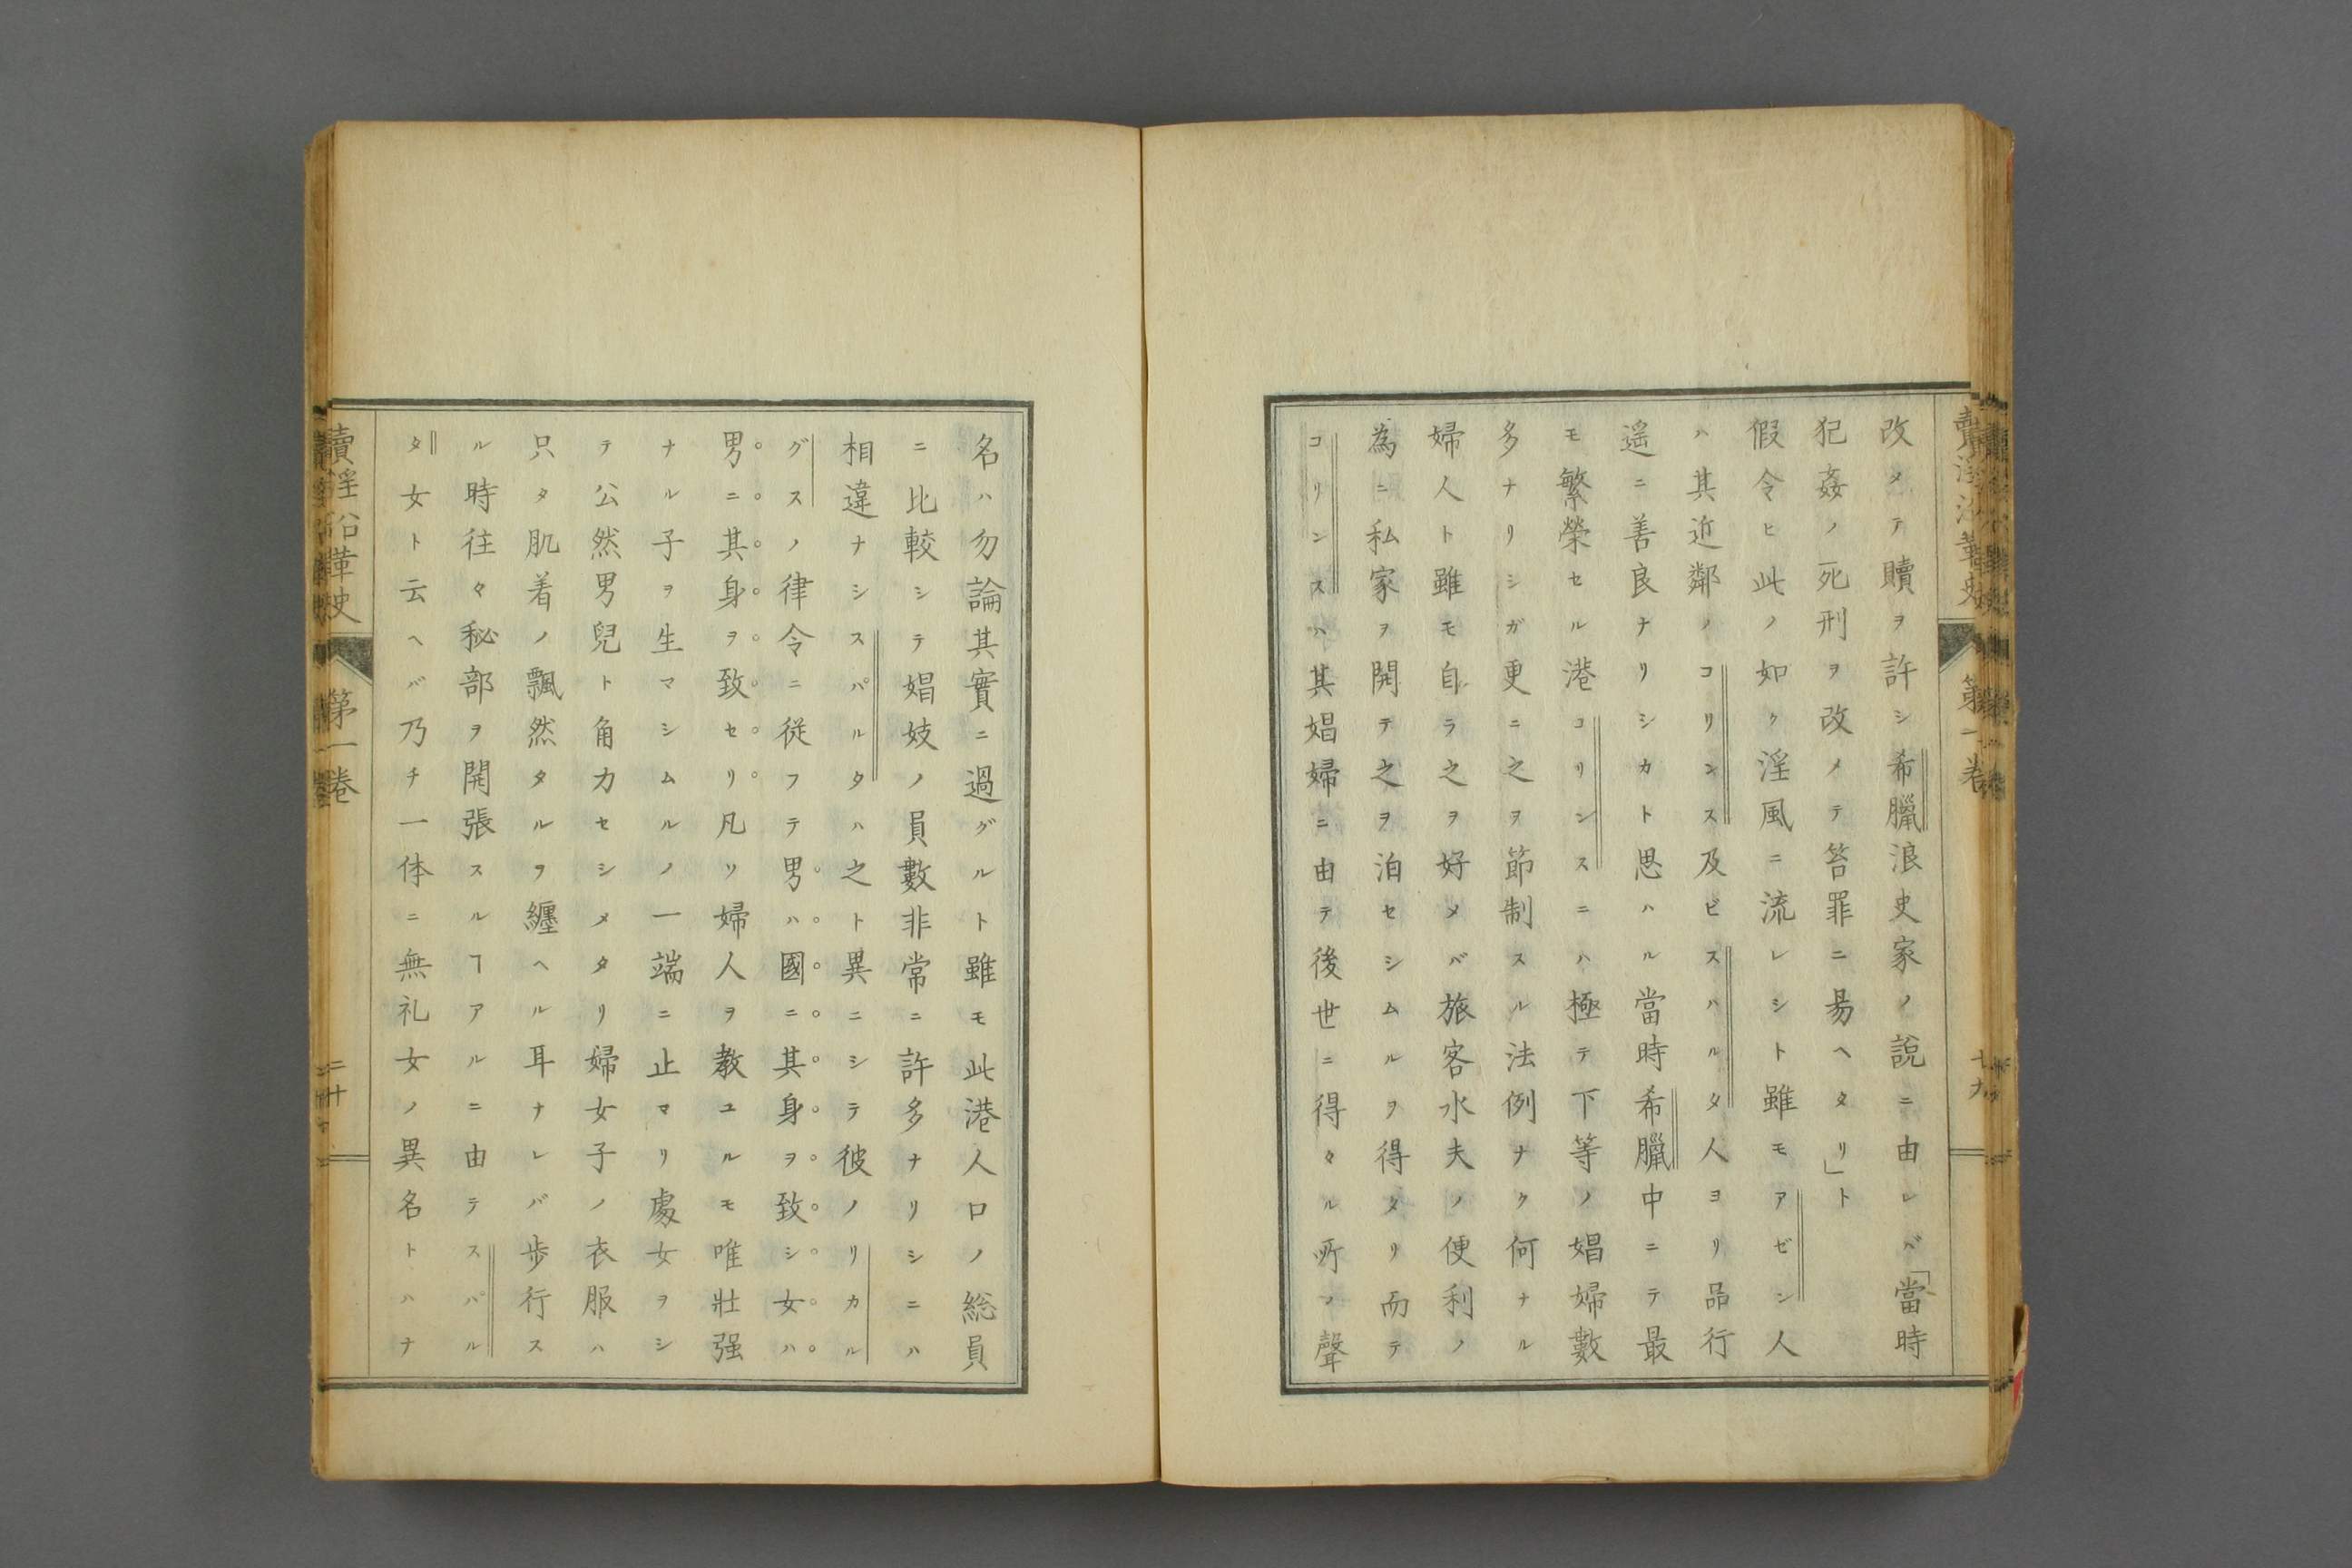 賣淫沿革史 第一卷 十九
改タテ贖ヲ許シ希臘浪史家ノ說ニ由レバ「當時
犯姦ノ死刑ヲ改メテ笞罪ニ易ヘタリ」ト
假令ヒ此ノ如ク淫風ニ流レシト雖モアゼン人
ハ其近鄰ノコリンス及ビスハルタ人ヨリ品行
遥ニ善良ナリシカト思ハル當時希臘中ニテ最
モ繁榮セル港コリンスニハ極テ下等ノ娼婦數
多ナリシガ更ニ之ヲ節制スル法例ナク何ナル
婦人ト雖モ自ラ之ヲ好メバ旅客水夫ノ便利ノ
為ニ私家ヲ開テ之ヲ泊セシムルヲ得タリ而テ
コリンスハ其娼婦ニ由テ後世ニ得タル所ノ聲
名ハ勿論其實ニ過グルト雖モ此港人口ノ総員
ニ比較シテ娼妓ノ員數非常ニ許多ナリシニハ
相違ナシスパルタハ之ト異ニシテ彼ノリカル
グスノ律令ニ従フテ男ハ國ニ其身ヲ致シ女ハ
男ニ其身ヲ致セリ凡ソ婦人ヲ教ユルモ唯壯强
ナル子ヲ生マシムルノ一端ニ止マリ處女ヲシ
テ公然男兒ト角力セシメタリ婦女子ノ衣服ハ
只タ肌着ノ飄然タルヲ纏ヘル耳ナレバ歩行ス
ル時往々秘部ヲ開張スルヿアルニ由テスパル
タ女ト云ヘバ乃チ一体ニ無礼女ノ異名トハナ
賣淫沿革史 第一卷 二十